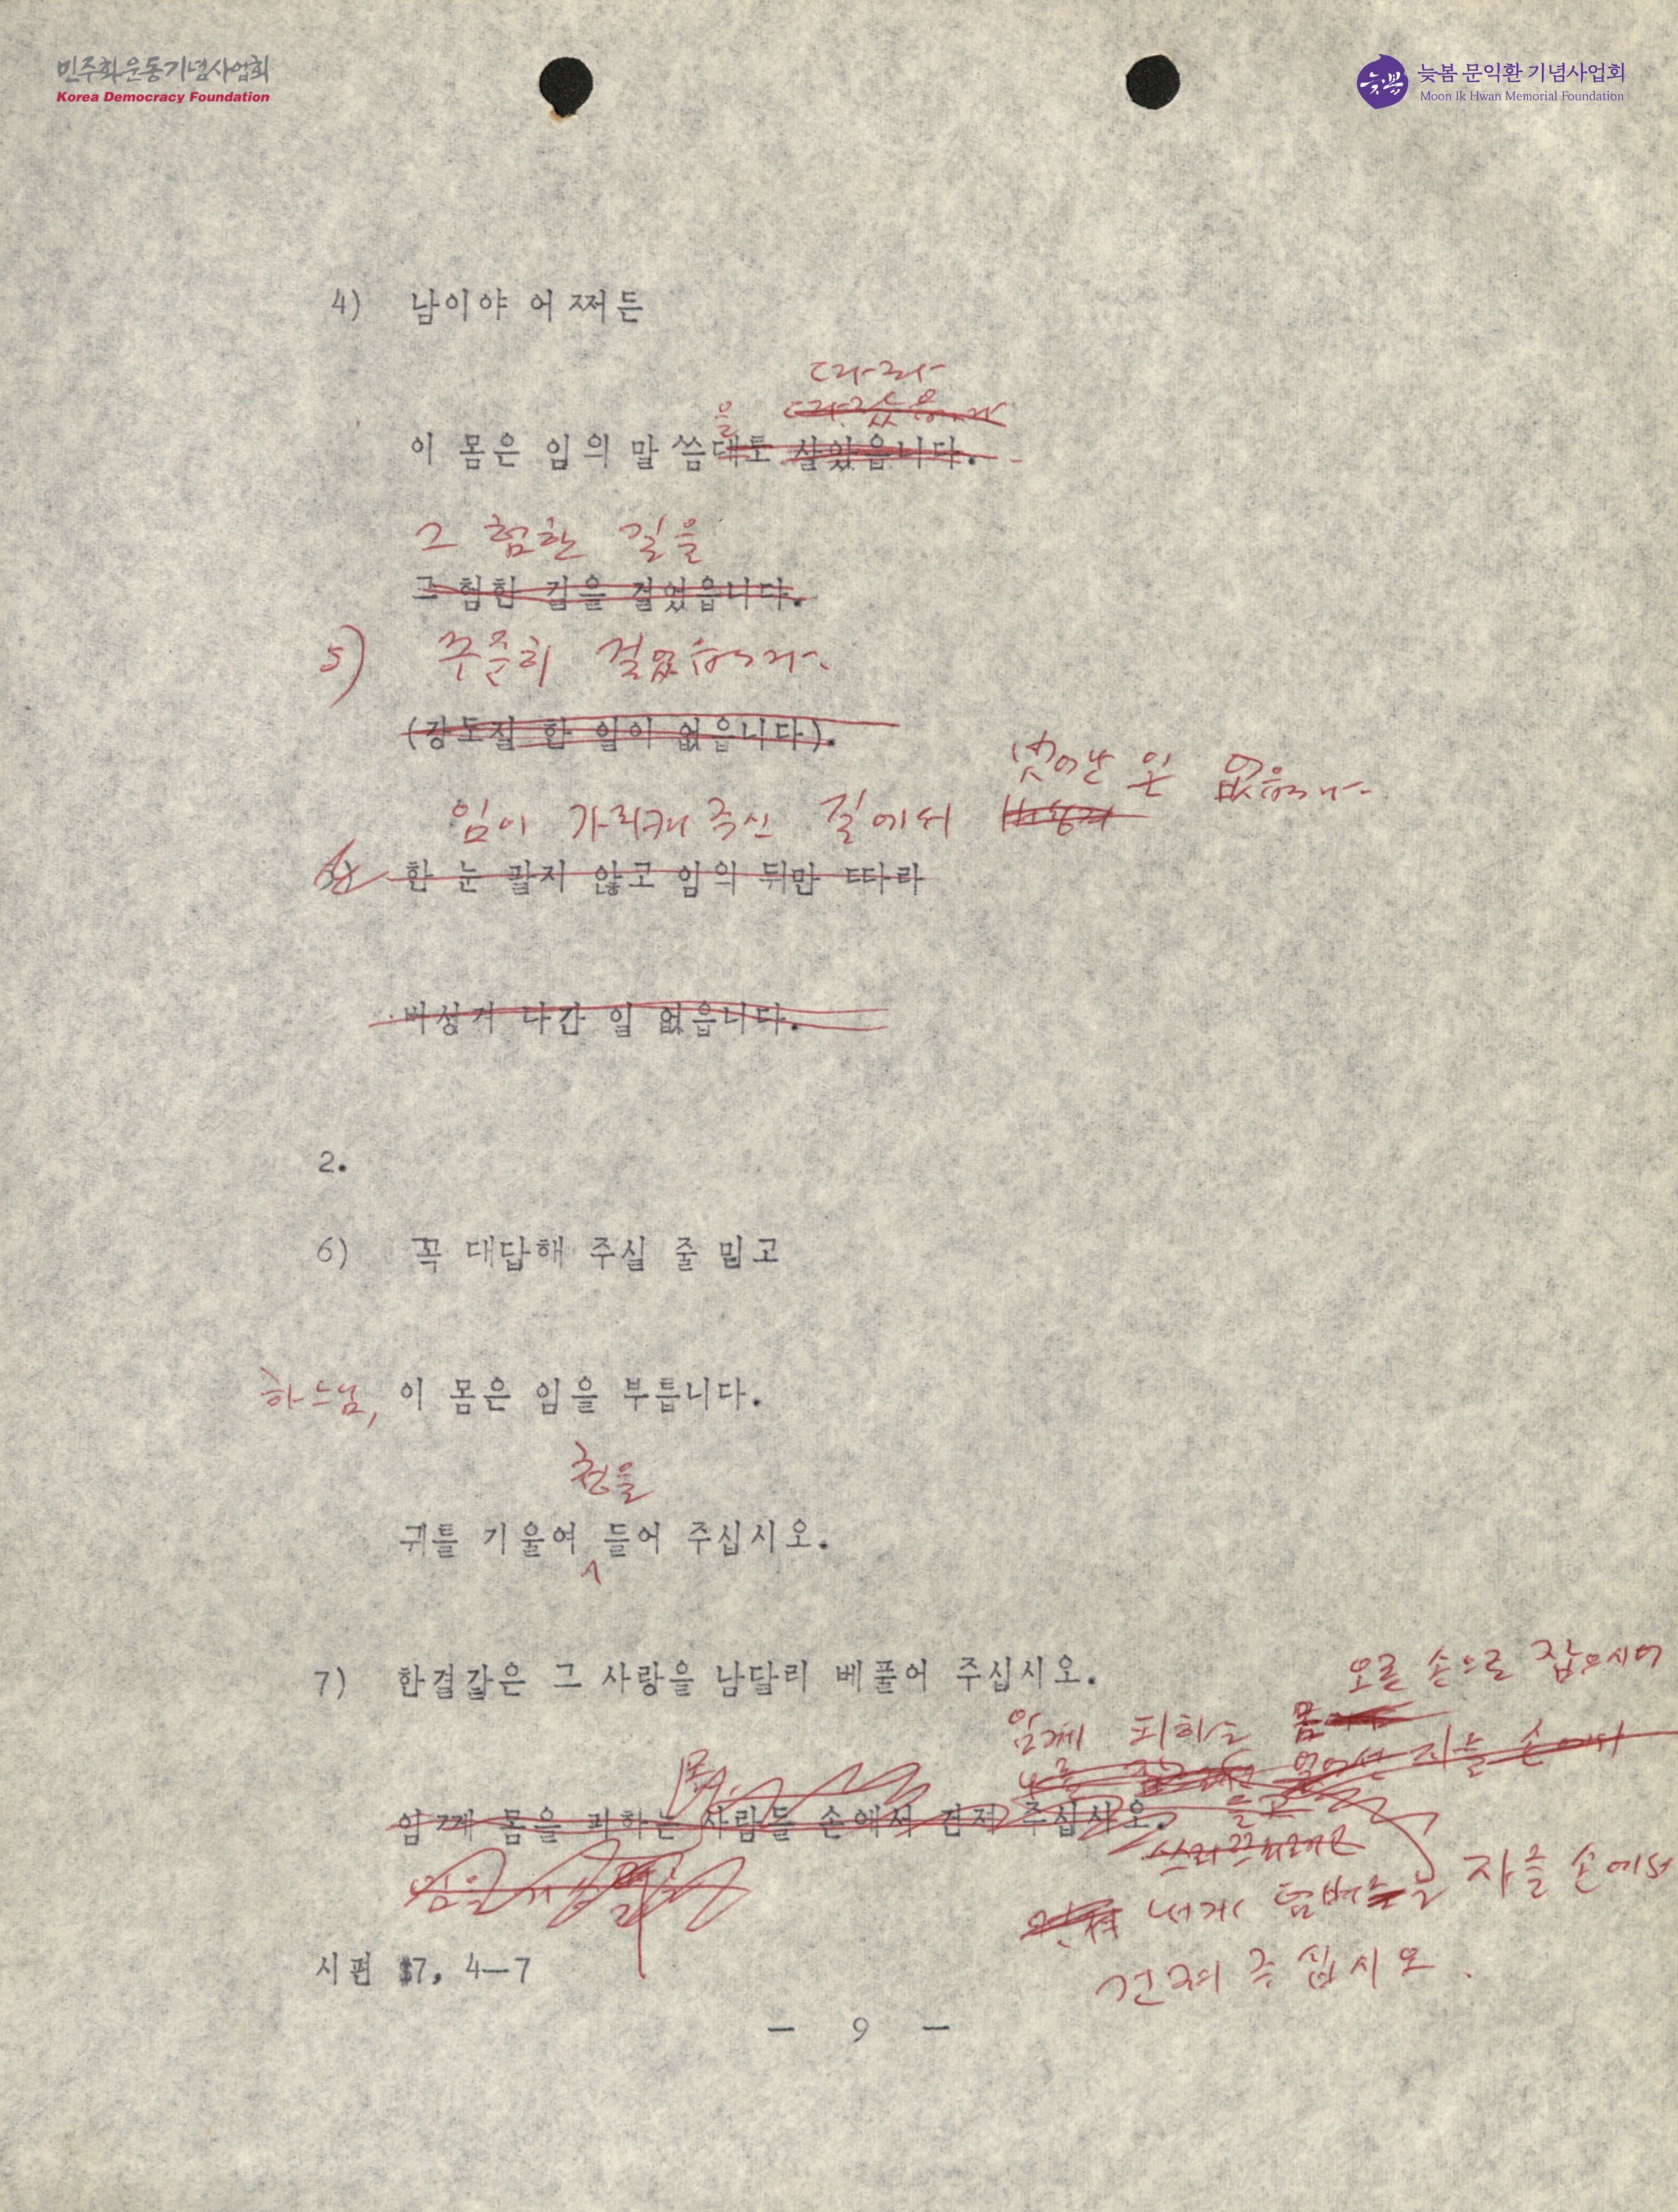 민주화운동기념사업회
Korea Democracy Foundation
늦봄 문익환 기념사업회
Moon Ik Hwan Memorial Foundation
4) 남이야 어쩌든
따라
을
이 몸은 임의 말씀대로 살았읍니다.
그 험한 길을
그 험한 길을 걸었읍니다.
5) 꾸준히 걸었습니다.
(강도질 한 일이 없읍니다).
벗어난 일 없읍니다.
임이 가리켜 주신 길에서
한 눈 팔지 않고 임의 뒤만 따라
비성거 나간 일 없읍니다.
2.
6) 꼭 대답해 주실 줄 믿고
하느님, 이 몸은 임을 부릅니다.
청을
귀를 기울여 들어 주십시오.
7) 한결같은 그 사랑을 남달리 베풀어 주십시오.
오른 손으로 잡으시어
임께 피하는 몸
임께 몸을 피하는 사람들 손에서 건져 주십시오.
자들 손에서
건져 주십시오.
시편 17, 4—7
— 9 —